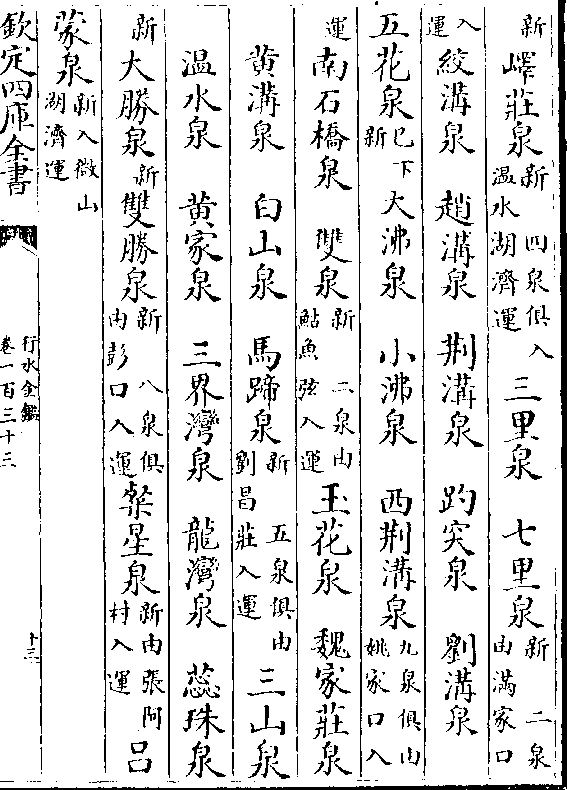 新 嶧莊泉 新 四泉俱入温水湖濟運 三里泉 七里泉 新 二泉由滿家口
入運 絞溝泉 趙溝泉 荆溝泉 趵突泉 劉溝泉
五花泉 已下新 大沸泉 小沸泉 西荆溝泉 九泉俱由姚家口入
運 南石橋泉 雙泉 新 二泉由鮎魚弦入運 玉花泉 魏家莊泉
黄溝泉 白山泉 馬蹄泉 新 五泉俱由劉昌莊入運 三山泉
温水泉 黄家泉 三界灣泉 龍灣泉 蕊珠泉
新 大勝泉 新 雙勝泉 新 八泉俱由彭口入運 粲星泉 新由張阿村入運 吕
蒙泉 新入微山湖濟運
欽定四庫全書
行水金鑑
卷一百三十三
十三